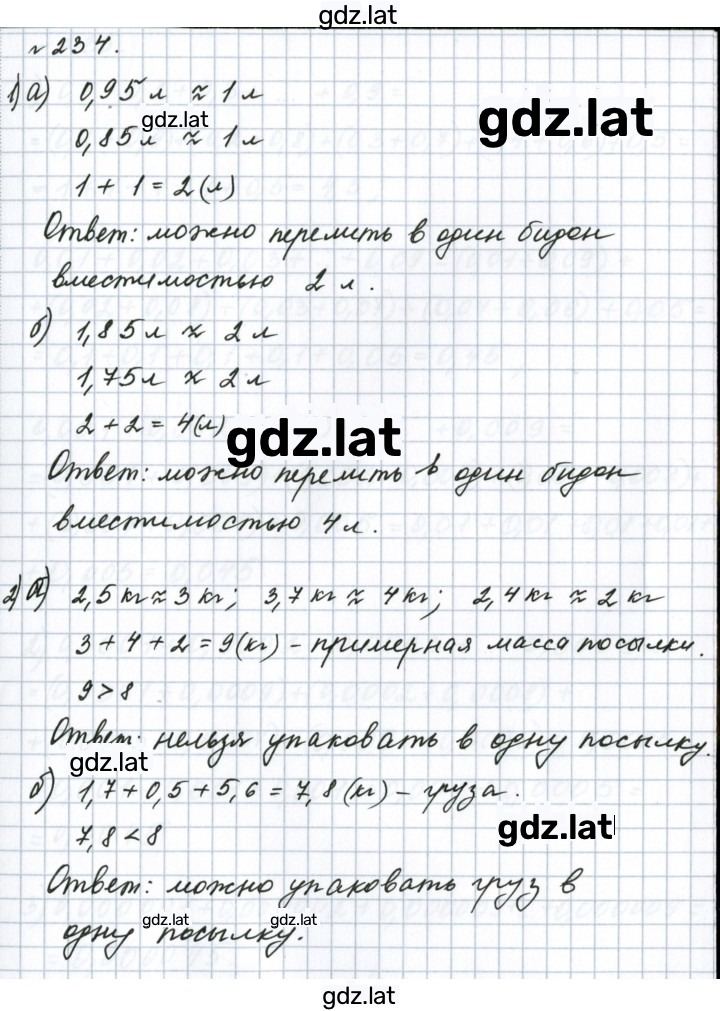 gdz.lat
№ 234.
1) а) 0,95 л ≈ 1 л
gdz.lat
gdz.lat
0,85 л ≈ 1 л
1 + 1 = 2 (л)
Ответ: можно перелить в один бидон
вместимостью 2 л.
б) 1,85 л ≈ 2 л
1,75 л ≈ 2 л
2 + 2 = 4 (л)
gdz.lat
Ответ: можно перелить в один бидон
вместимостью 4 л.
2) а) 2,5 кг ≈ 3 кг; 3,7 кг ≈ 4 кг; 2,4 кг ≈ 2 кг
3 + 4 + 2 = 9 (кг) – примерная масса посылки.
9 > 8
Ответ: нельзя упаковать в одну посылку.
gdz.lat
б) 1,7 + 0,5 + 5,6 = 7,8 (кг) – груза.
7,8 < 8
gdz.lat
Ответ: можно упаковать груз в
gdz.lat gdz.lat
одну посылку.
gdz.lat